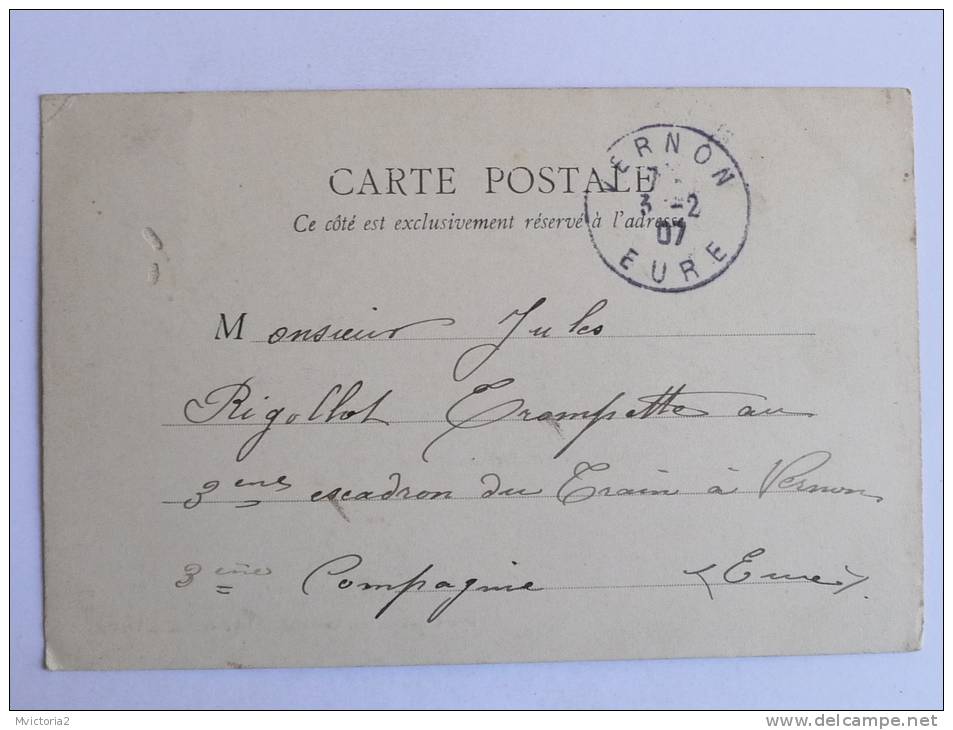 CARTE POSTALE
Ce côté est exclusivement réservé à l'adresse
VERNON
7
3 -2
07
EURE
Monsieur Jules
Rigollot Trompette au
3eme escadron du Train à Vernon
3ème Compagnie (Eure).
Mvictoria2
www.delcampe.net